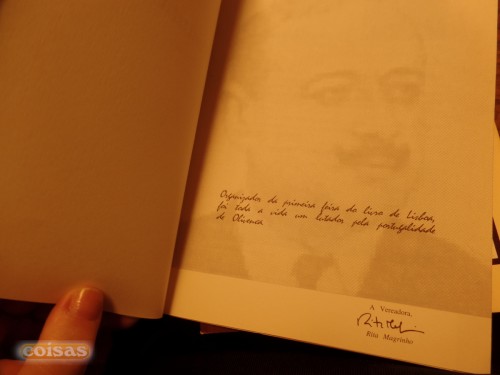 Organizador da primeira feira do livro de Lisboa,
foi toda a vida um lutador pela portugalidade
de Olivença
A Vereadora,
Rita Magrinho
coisas